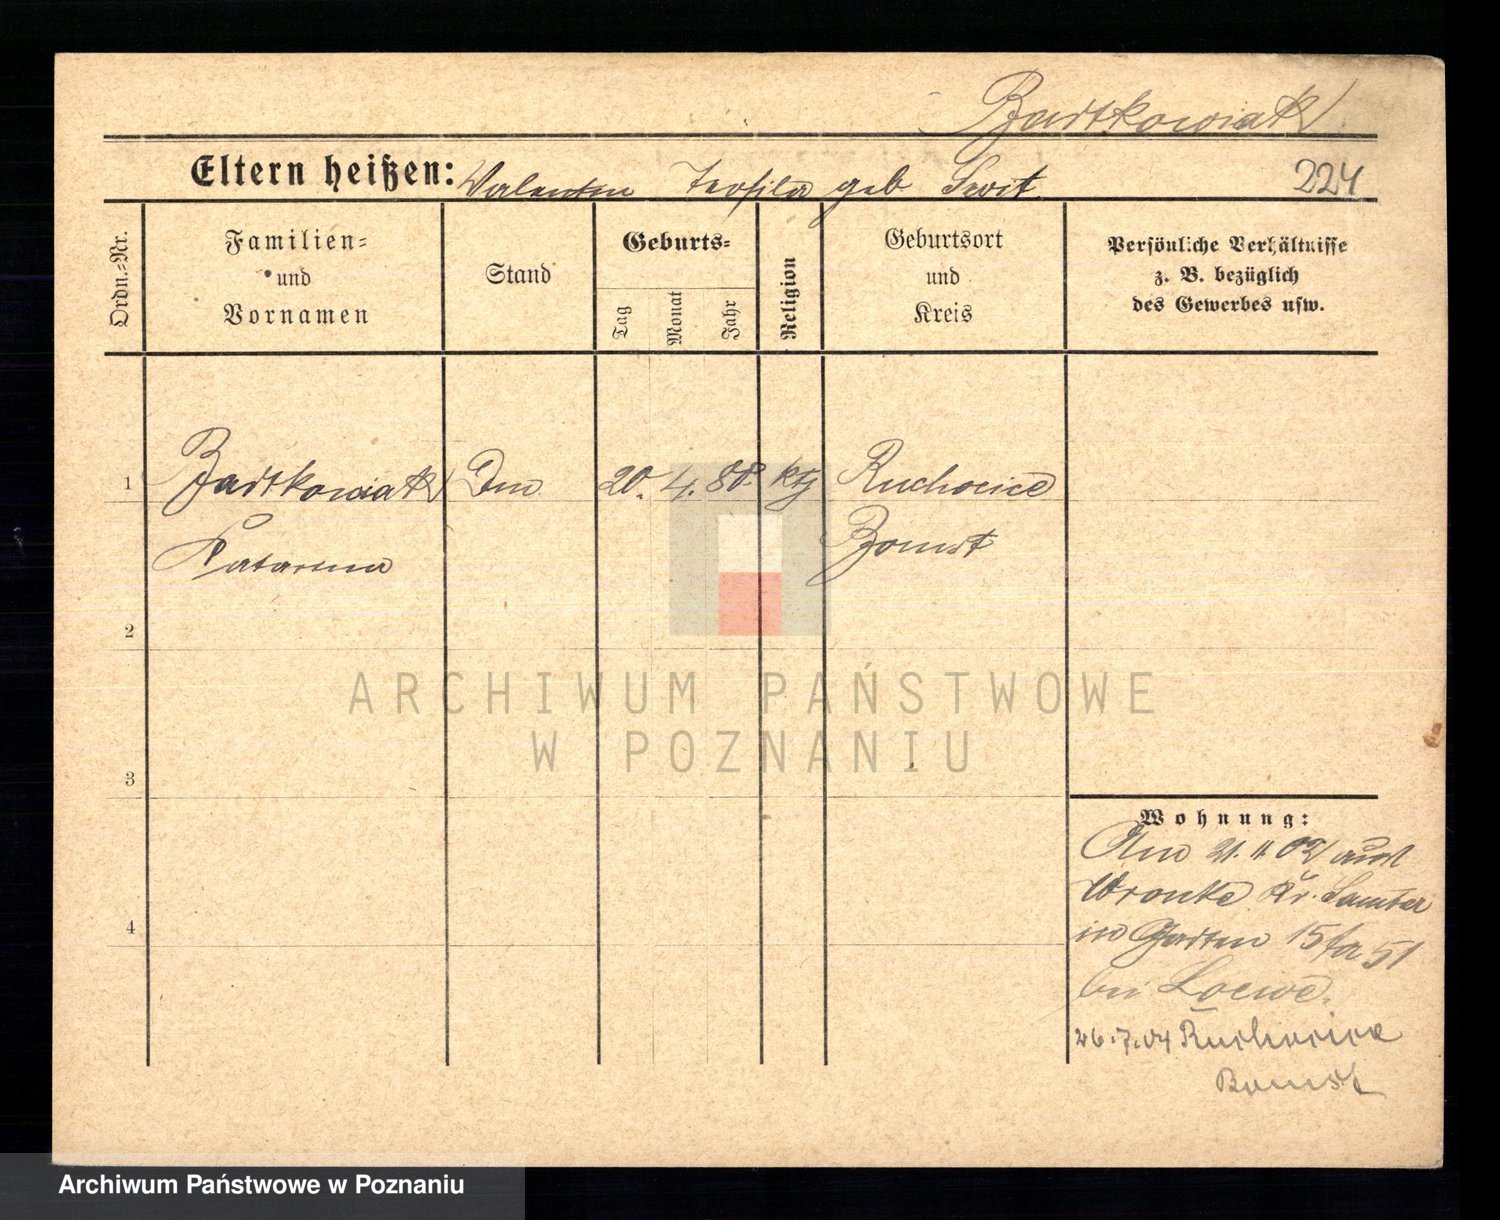 Bartkowiak
Eltern heißen: Valentin Teofila geb Swit
224
Ordn.=Nr.
Familien=
und
Vornamen
Stand
Geburts=
Tag
Monat
Jahr
Religion
Geburtsort
und
Kreis
Persönliche Verhältnisse
z. B. bezüglich
des Gewerbes usw.
1 Bartkowiak 20. 4. 80. kth Ruchocice
Katarina Bomst
2
3
4
Wohnung:
Am 21. 11. 02 aus
Wronke Kr. Samter
in Garten 15
bei Loewe.
26.7.04 Ruchocice
Bomst
ARCHIWUM PAŃSTWOWE
W POZNANIU
Archiwum Państwowe w Poznaniu